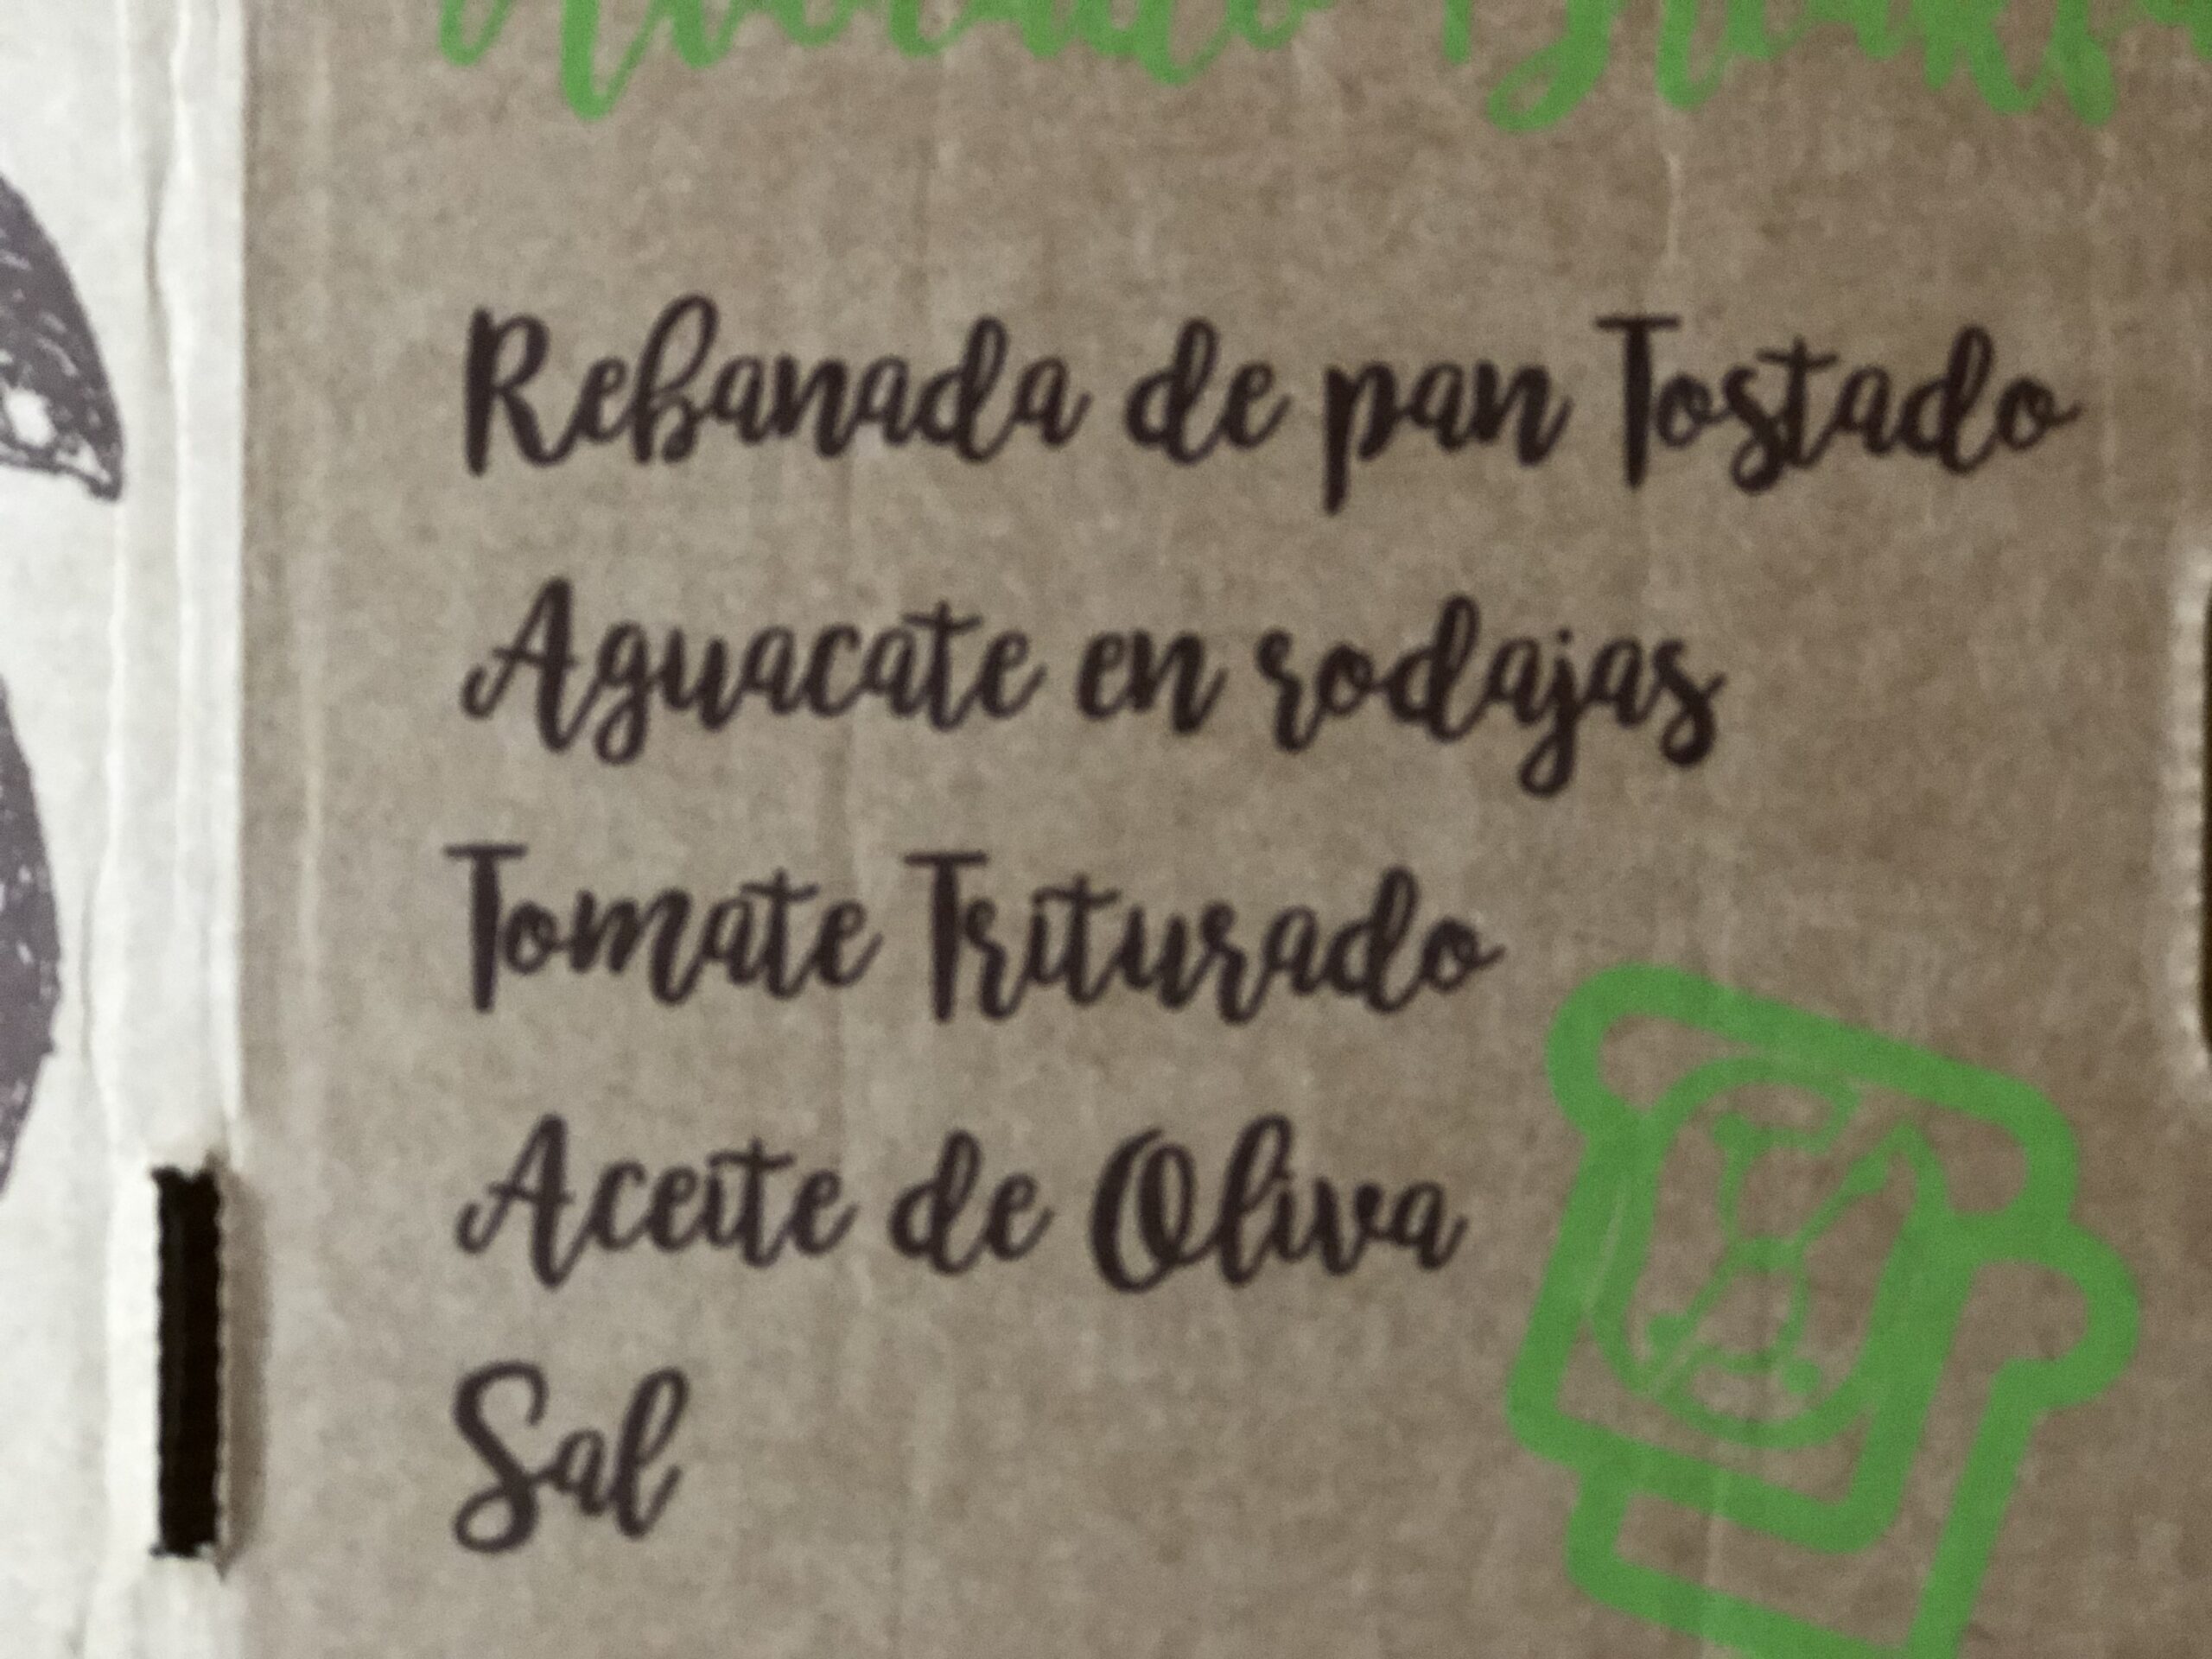 Avocado
Rebanada de pan Tostado
Aguacate en rodajas
Tomate Triturado
Aceite de Oliva
Sal